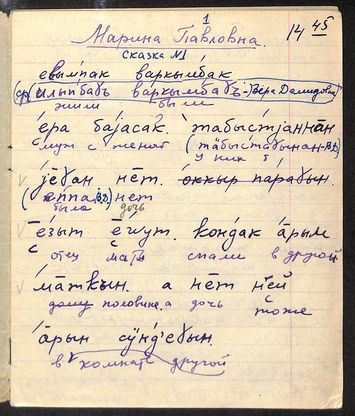 1
Марина Павловна. 14 45
сказка №1
евымпак варкымбак
(ср. илыпбаъ варкымбаъ - Вера Демидовна)
жили были
ера баjасак? табыстjаннан
муж с женой (табыстабынан - ВД)
у них
jедан нет. оккыр парабын.
(еппа ВД) нет
была дочь
езыт евут. кондак арым
отец мать спали в другой
маткын. а нет ней
дому половине. а дочь тоже
арын сӱнд'ебын.
в комнате другой